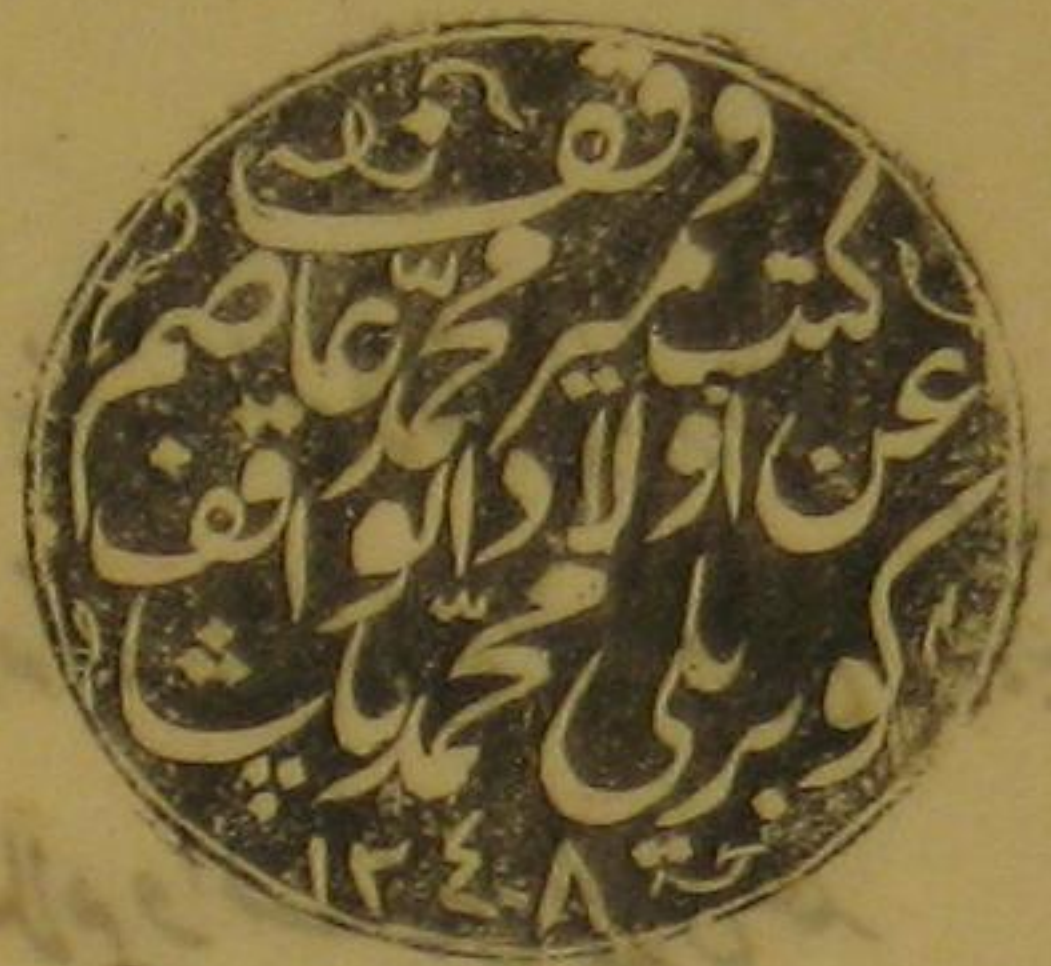 وقف
كتب مير محمّد عاصم
عن اولاد الواقف
كوبريلى محمّد پاشا
١٢٤٨